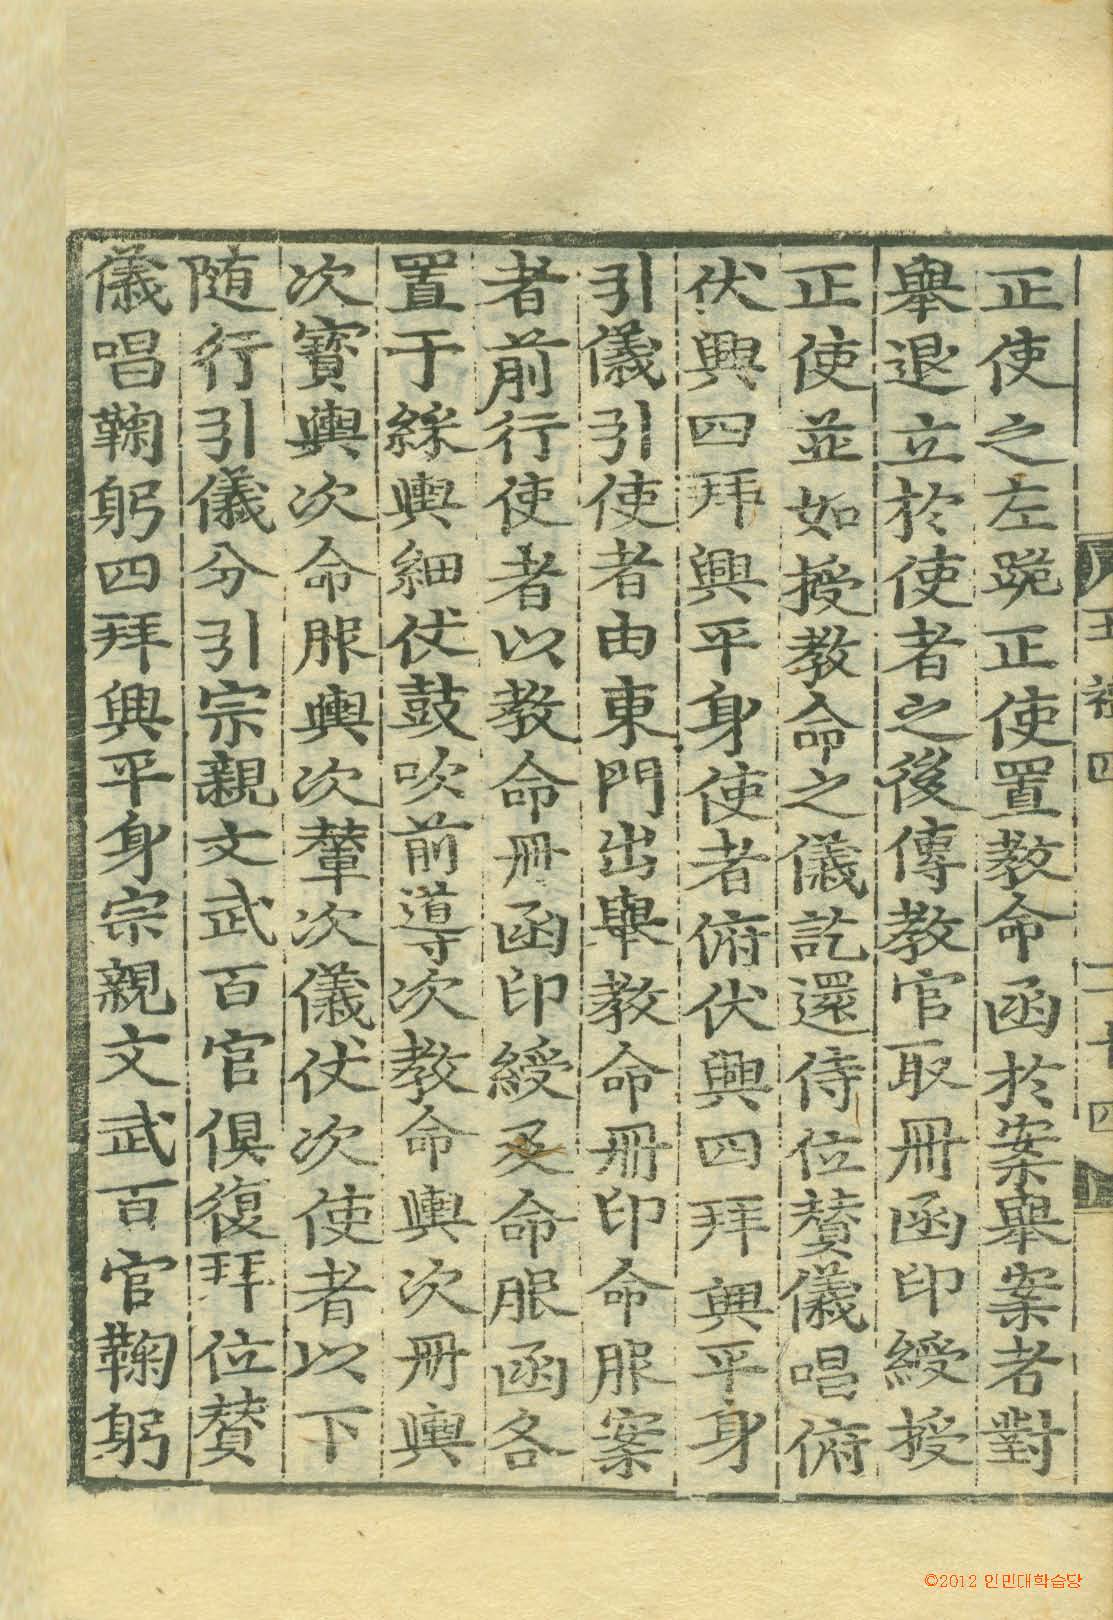 正使之左跪正使置教命函於案舉案者對
舉退立於使者之後傳教官取冊函印綬授
正使並如授教命之儀訖還侍位賛儀唱俯
伏興四拜興平身使者俯伏興四拜興平身
引儀引使者由東門出舉教命冊印命服案
者前行使者以教命冊函印綬及命服函各
置于綵輿細仗鼓吹前導次教命輿次冊輿
次寶輿次命服輿次輦次儀仗次使者以下
随行引儀分引宗親文武百官俱復拜位賛
儀唱鞠躬四拜興平身宗親文武百官鞠躬
©2012 인민대학습당